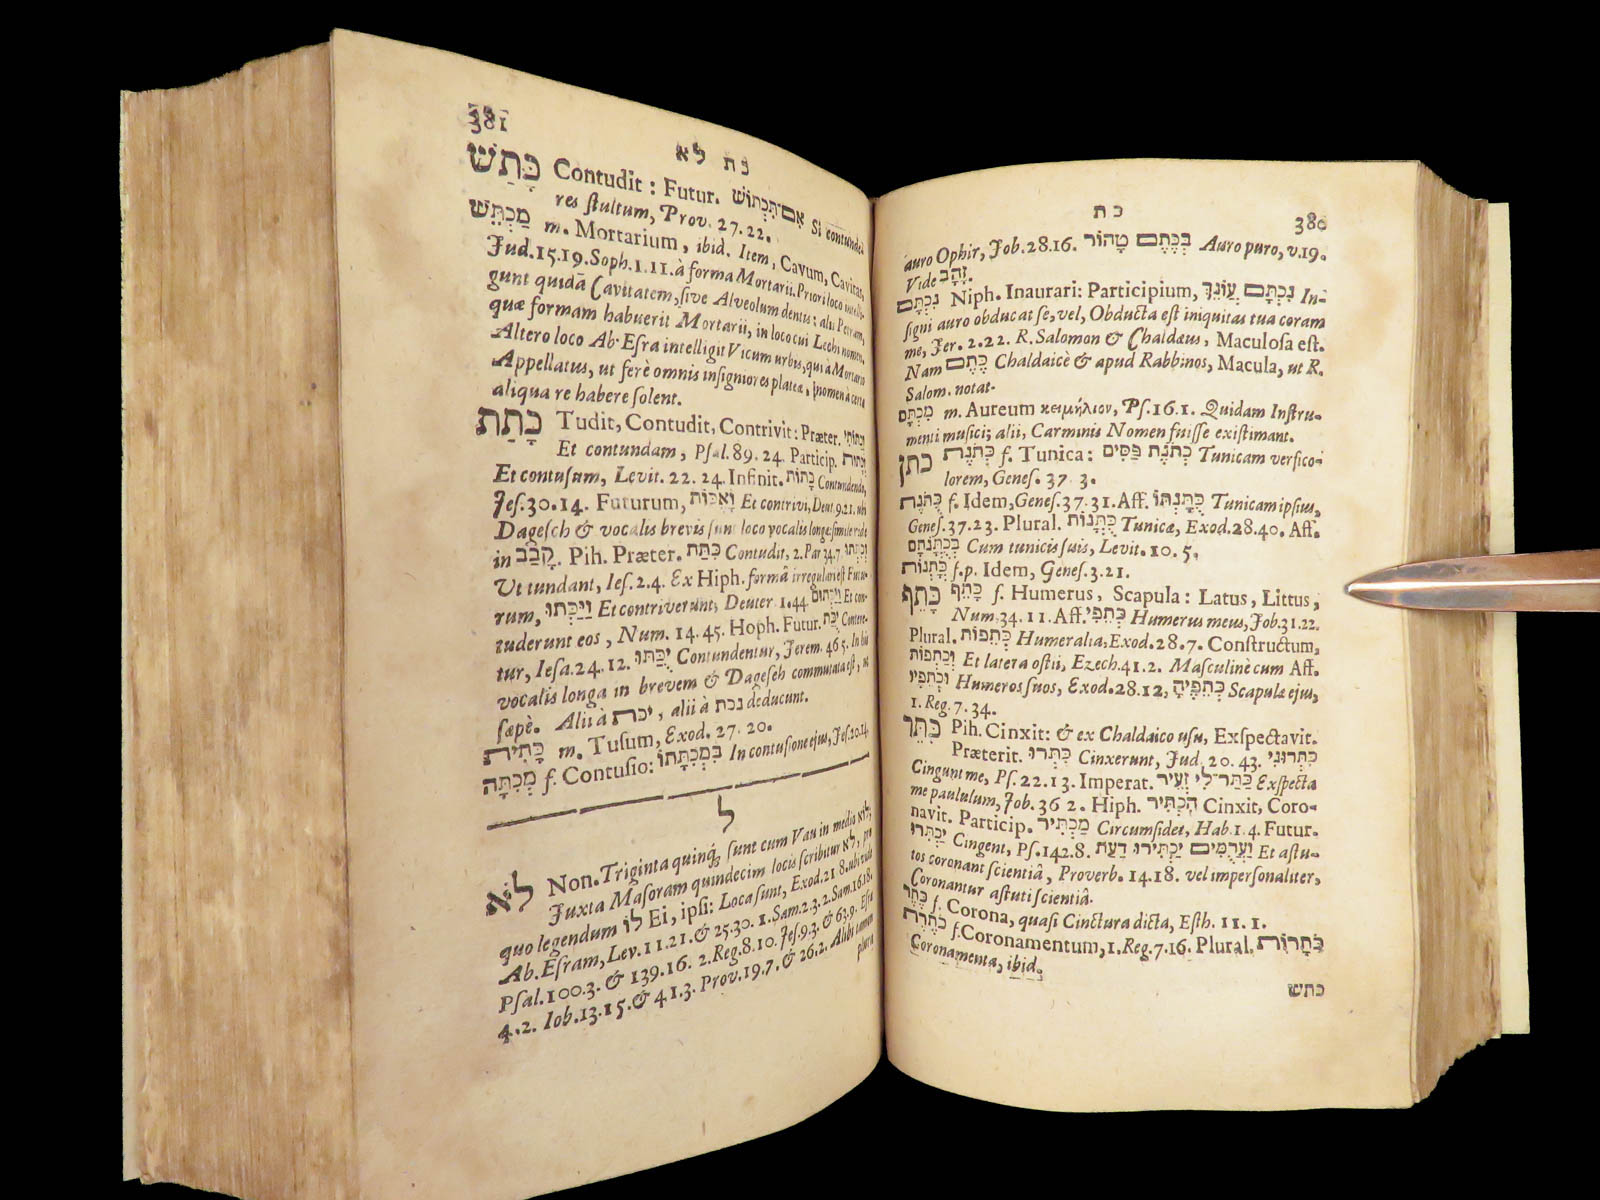 כת
380
auro Ophir, Job. 28.16. בְּכֶתֶם טָהוֹר Auro puro, v.19.
Vide זָהָב.
נִכְתָּם Niph. Inaurari: Participium, נִכְתָּם עֲוֹנֵךְ In-
signi auro obducat se, vel, Obducta est iniquitas tua coram
me, Jer. 2.22. R. Salomon & Chaldæus, Maculosa est.
Nam כֶּתֶם Chaldaicè & apud Rabbinos, Macula, ut R.
Salom. notat.
מִכְתָּם m. Aureum κειμήλιον, Ps. 16.1. Quidam Instru-
menti musici; alii, Carminis Nomen fuisse existimant.
כתן כְּתֹנֶת f. Tunica: כְּתֹנֶת פַּסִּים Tunicam versico-
lorem, Genes. 37. 3.
כֻּתֹּנֶת f. Idem, Genes. 37.31. Aff. כֻּתָּנְתּוֹ Tunicam ipsius,
Genes. 37.23. Plural. כֻּתֳּנוֹת Tunicæ, Exod. 28.40. Aff.
בְּכֻתֳּנֹתָם Cum tunicis suis, Levit. 10. 5.
כָּתְנוֹת f.p. Idem, Genes. 3.21.
כָּתֵף כָּתֵף f. Humerus, Scapula: Latus, Littus,
Num. 34. 11. Aff. כְּתֵפִי Humerus meus, Job. 31.22.
Plural. כְּתֵפוֹת Humeralia, Exod. 28.7. Constructum,
וְכִתְפוֹת Et latera ostii, Ezech. 41.2. Masculinè cum Aff.
וּכְתֵפָיו Humeros suos, Exod. 28.12, כְּתֵפֶיהָ Scapulæ ejus,
1. Reg. 7. 34.
כִּתֵּר Pih. Cinxit: & ex Chaldaico usu, Exspectavit.
Præterit. כִּתְּרוּ Cinxerunt, Jud. 20. 43. כִּתְּרוּנִי
Cingunt me, Ps. 22. 13. Imperat. כַּתַּר־לִי זְעֵיר Exspecta
me paululum, Job. 36 2. Hiph. הִכְתִּיר Cinxit, Coro-
navit. Particip. מַכְתִּיר Circumsidet, Hab. 1.4. Futur.
יַכְתִּרוּ Cingent, Ps. 142.8. וַעֲרֻמִּים יַכְתִּירוּ דָעַת Et astu-
tos coronant scientiâ, Proverb. 14.18. vel impersonaliter,
Coronantur astuti scientiâ.
כֶּתֶר f. Corona, quasi Cinctura dicta, Esth. 1 1. 1.
כֹּתֶרֶת f. Coronamentum, 1. Reg. 7.16. Plural. כֹּתָרוֹת
Coronamenta, ibid.
כתש
381
כת לא
כָּתַשׁ Contudit: Futur. אִם־תִּכְתּוֹשׁ Si contundes
res stultum, Prov. 27. 22.
מַכְתֵּשׁ m. Mortarium, ibid. Item, Cavum, Cavitas,
Jud. 15.19. Soph. 1. 11. à forma Mortarii. Priori loco intelli-
gunt quidã Cavitatem, sive Alveolum dentis: alii Petram,
quæ formam habuerit Mortarii, in loco cui Lechi nomen.
Altero loco Ab. Esra intelligit Vicum urbis, qui à Mortario
Appellatus, ut ferè omnis insigniores plateæ, nomen à certa
aliqua re habere solent.
כָּתַת Tudit, Contudit, Contrivit: Præter. וְכַתּוֹתִי
Et contundam, Psal. 89. 24. Particip. וְכָתוּת
Et contusum, Levit. 22. 24. Infinit. כָּתוֹת Contundendo,
Jes. 30. 14. Futurum, וָאֶכּוֹת Et contrivi, Deut. 9.21. ubi
Dagesch & vocalis brevis sunt loco vocalis longæ: simile vide
in קָבַב. Pih. Præter. כִּתַּת Contudit, 2. Par 34.7. וְכִתְּתוּ
Ut tundant, Ies. 2.4. Ex Hiph. formâ irregulari est Futu-
rum, וַיַּכְּתוּ Et contriverunt, Deuter 1.44. וַיַּכְּתוּם Et con-
tuderunt eos, Num. 14. 45. Hoph. Futur. יֻכַּת Contere-
tur, Iesa. 24. 12. יֻכַּתּוּ Contundentur, Jerem. 46 5. In his
vocalis longa in brevem & Dagesch commutata est, ut
sæpè. Alii à יכת, alii à נכת deducunt.
כָּתִית m. Tusum, Exod. 27. 20.
מְכִתָּה f. Contusio: בִּמְכִתָּתוֹ In contusione ejus, Jes. 30.14.
ל
לֹא Non. Triginta quinq; sunt cum Vau in medio לוֹא,
Juxta Masoram quindecim locis scribitur לֹא, pro
quo legendum לוֹ Ei, ipsi: Loca sunt, Exod. 21 8. ubi vide
Ab. Esram, Lev. 11.21. & 25.30. 1. Sam. 2.3. 2. Sam. 16.18.
Psal. 100.3. & 139.16. 2. Reg. 8.10. Jes. 9.3. & 63.9. Esra
4.2. Iob. 13.15. & 41.3. Prov. 19.7. & 26.2. Alibi tamen
plura